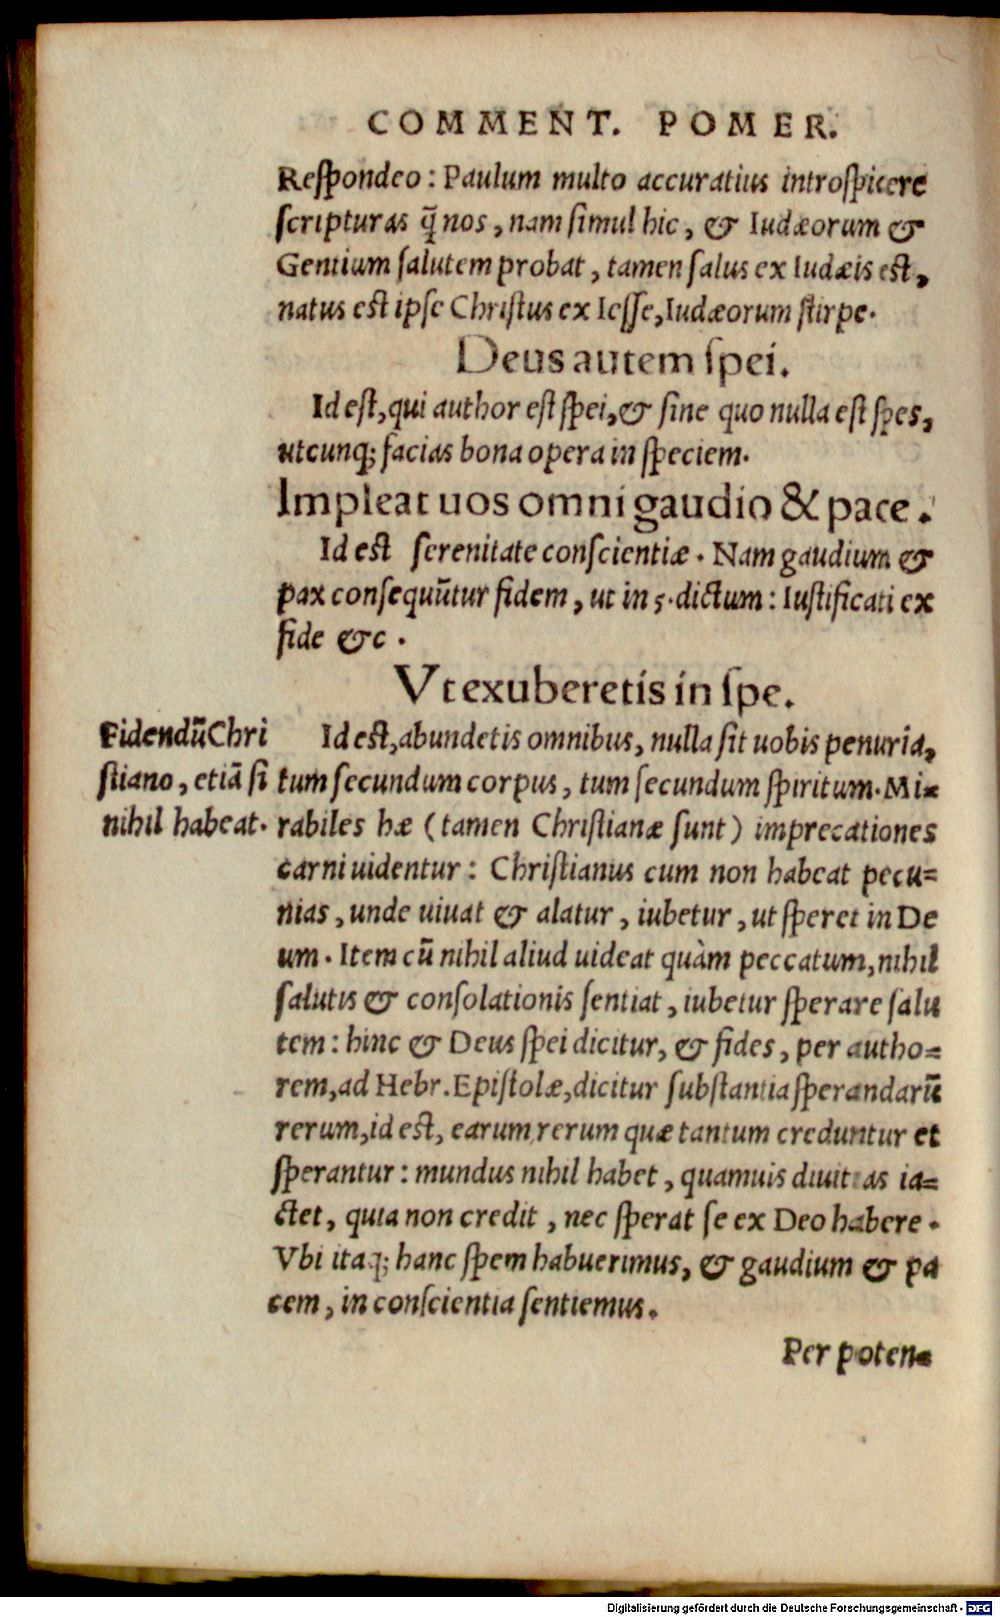 COMMENT. POMER.
Respondeo: Paulum multo accuratius introspicere
scripturas q̃ nos, nam simul hic, & Iudæorum &
Gentium salutem probat, tamen salus ex Iudæis est,
natus est ipse Christus ex Iesse, Iudæorum stirpe.
Deus autem spei.
Id est, qui author est spei, & sine quo nulla est spes,
utcunq; facias bona opera in speciem.
Impleat uos omni gaudio & pace.
Id est serenitate conscientiæ. Nam gaudium &
pax consequũtur fidem, ut in 5. dictum: Iustificati ex
fide &c.
Vt exuberetis in spe.
Fidendũ Chri
stiano, etiã si
nihil habeat.
Id est, abundetis omnibus, nulla sit uobis penuria,
tum secundum corpus, tum secundum spiritum. Mi=
rabiles hæ (tamen Christianæ sunt) imprecationes
carni uidentur: Christianus cum non habeat pecu=
nias, unde uiuat & alatur, iubetur, ut speret in De
um. Item cũ nihil aliud uideat quàm peccatum, nihil
salutis & consolationis sentiat, iubetur sperare salu
tem: hinc & Deus spei dicitur, & fides, per autho=
rem, ad Hebr. Epistolæ, dicitur substantia sperandarũ
rerum, id est, earum rerum quæ tantum creduntur et
sperantur: mundus nihil habet, quamuis diuitias ia=
ctet, quia non credit, nec sperat se ex Deo habere.
Vbi itaq; hanc spem habuerimus, & gaudium & pa
cem, in conscientia sentiemus.
Per poten=
Digitalisierung gefördert durch die Deutsche Forschungsgemeinschaft - DFG